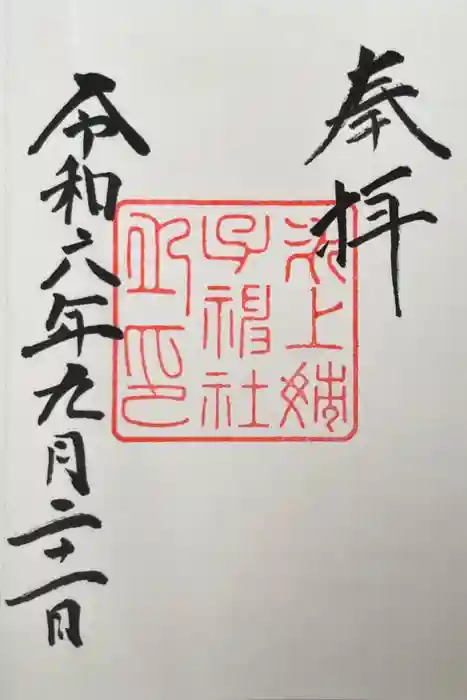 奉拝
氷上姉
子神社
印
令和六年九月二十一日